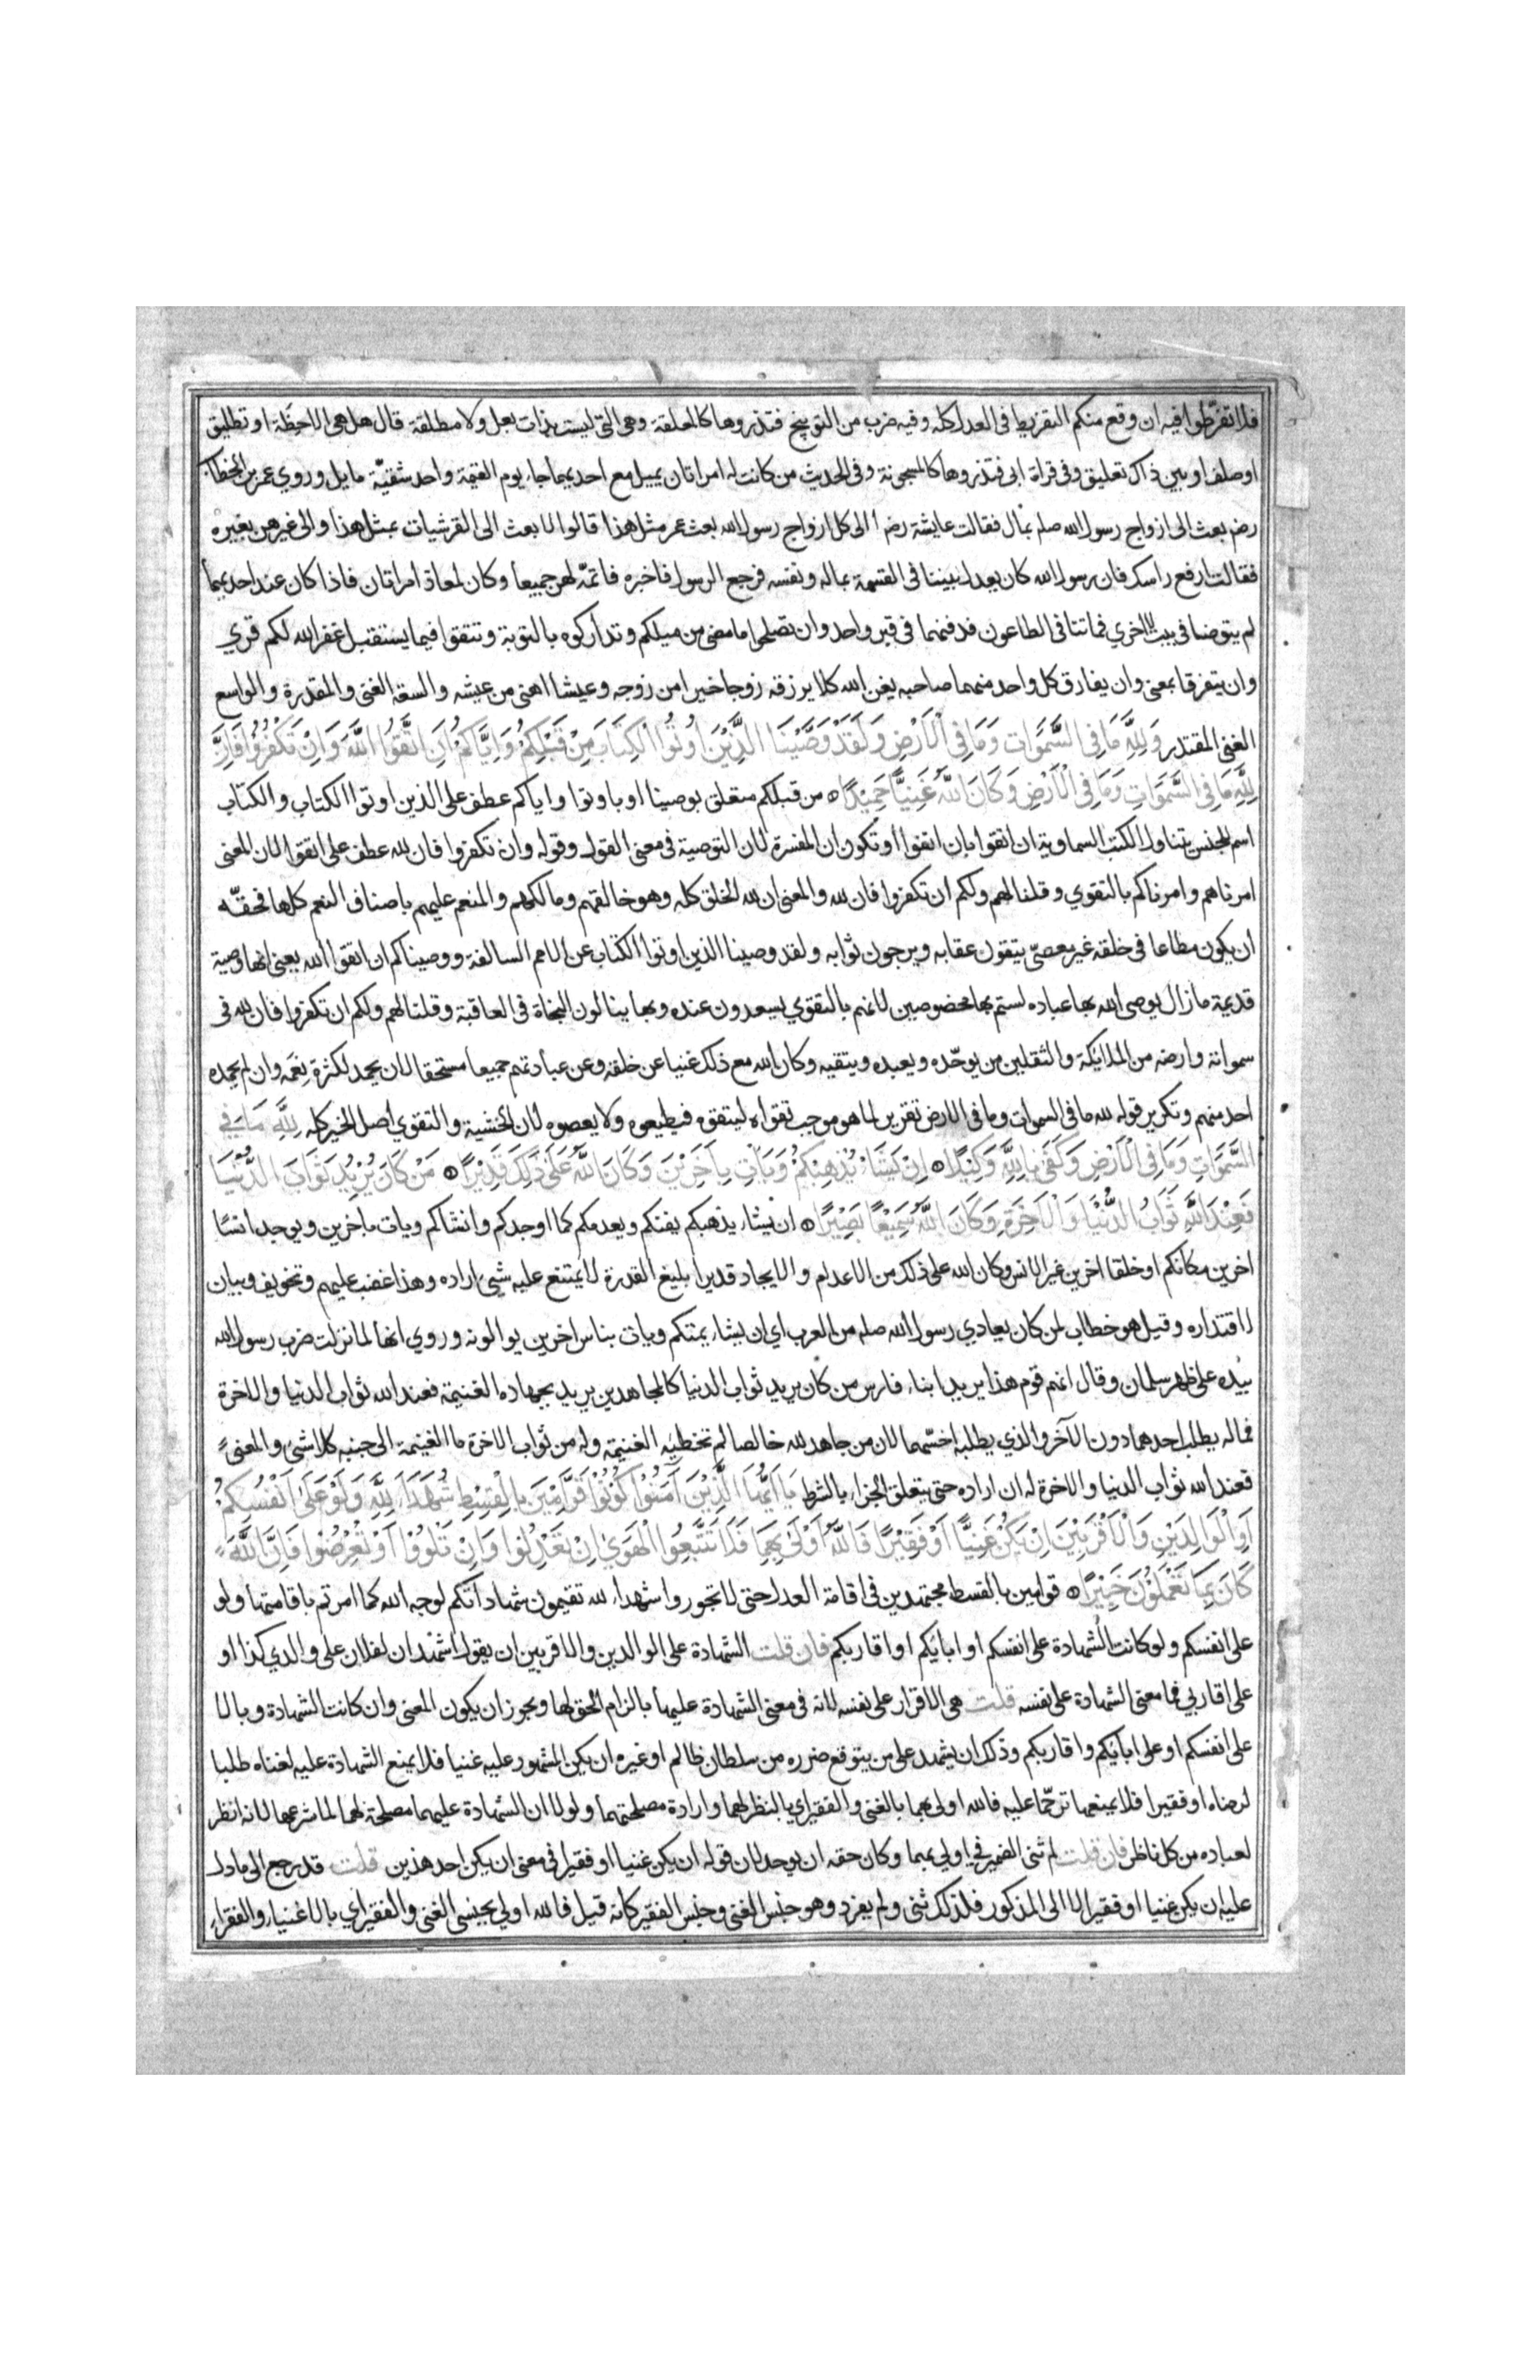 فلا تفرّطوا فيه ان وقع منكم التفريط في العدل كله وفيه ضرب من التوبيخ فتذروها كالمعلقة وهي التي ليست بذات بعل ولا مطلقة قال هل هي الا حظة او تطليق
او صلف او بين ذاك تعليق وفي قراة ابي فتذروها كالمسجونة وفي الحديث من كانت له امراتان يميل مع احديهما جاء يوم القيمة واحد شقيّه مايل وروي عمر بن الخطاب
رض بعث الى ازواج رسول الله صلم بمال فقالت عايشة رض الى كل ازواج رسول الله بعث عمر مثل هذا قالوا لا بعث الى القرشيات بمثل هذا والى غيرهن بغيره
فقالت ارفع راسك فان رسول الله كان يعدل بيننا في القسمة بماله ونفسه فرجع الرسول فاخبره فاتمّ لهن جميعا وكان لمعاذ امراتان فاذا كان عند احديهما
لم يتوضا في بيت الاخري فماتتا في الطاعون فدفنهما في قبر واحد وان تصلحوا ما مضى من ميلكم وتداركوه بالتوبة وتتقوا فيما يستقبل غفر الله لكم قري
وان يتفرقا بمعنى وان يفارق كل واحد منهما صاحبه يغن الله كلا يرزقه زوجا خيرا من زوجه وعيشا اهنى من عيشه والسعة الغنى والمقدرة والواسع
الغني المقتدر وَلِلَّهِ مَا فِي السَّمَوَاتِ وَمَا فِي الْاَرْضِ وَلَقَدْ وَصَّيْنَا الَّذِيْنَ اُوتُوا الْكِتَابَ مِنْ قَبْلِكُمْ وَاِيَّاكُمْ اَنِ اتَّقُوا اللَّهَ وَاِنْ تَكْفُرُوا فَاِنَّ
لِلَّهِ مَا فِي السَّمَوَاتِ وَمَا فِي الْاَرْضِ وَكَانَ اللَّهُ غَنِيًّا حَمِيْدًا من قبلكم متعلق بوصينا او باوتوا واياكم عطف على الذين اوتوا الكتاب والكتاب
اسم للجنس يتناول الكتب السماوية ان اتقوا بان اتقوا او تكون ان المفسرة لان التوصية في معنى القول وقوله وان تكفروا فان لله عطف على اتقوا لان المعنى
امرناهم وامرناكم بالتقوي وقلنا لهم ولكم ان تكفروا فان لله والمعنى ان لله الخلق كله وهو خالقهم ومالكهم والمنعم عليهم باصناف النعم كلها فحقّه
ان يكون مطاعا في خلقه غير معصيّ يتقون عقابه ويرجون ثوابه ولقد وصينا الذين اوتوا الكتاب عن الامم السالفة ووصيناكم ان اتقوا الله يعني انها وصية
قديمة ما زال يوصي الله بها عباده لستم بها مخصوصين لانهم بالتقوي يسعدون عنده وبها ينالون النجاة في العاقبة وقلنا لهم ولكم ان تكفروا فان لله في
سمواته وارضه من الملائكة والثقلين من يوحّده ويعبده ويتقيه وكان الله مع ذلك غنيا عن خلقه وعن عبادتهم جميعا مستحقا لان يحمد لكثرة نِعَمه وان لم يحمده
احد منهم وتكرير قوله لله ما في السموات وما في الارض تقرير لما هو موجب تقواه ليتقوه فيطيعوه ولا يعصوه لان الخشية والتقوي اصل الخير كله لِلَّهِ مَا فِي
السَّمَوَاتِ وَمَا فِي الْاَرْضِ وَكَفَى بِاللَّهِ وَكِيْلًا اِنْ يَشَاْ يُذْهِبْكُمْ وَيَاْتِ بِاَخَرِيْنَ وَكَانَ اللَّهُ عَلَى ذَلِكَ قَدِيْرًا مَنْ كَانَ يُرِيْدُ ثَوَابَ الدُّنْيَا
فَعِنْدَ اللَّهِ ثَوَابُ الدُّنْيَا وَالْاَخِرَةِ وَكَانَ اللَّهُ سَمِيْعًا بَصِيْرًا ان يشاء يذهبكم يفنكم ويعدمكم كما اوجدكم وانشاكم ويات باخرين ويوجد انسًا
اخرين مكانكم او خلقا اخرين غير الانس وكان الله على ذلك من الاعدام والايجاد قديرا بليغ القدرة لا يمتنع عليه شيئ اراده وهذا غضب عليهم وتخويف وبيان
لاقتداره وقيل هو خطاب لمن كان يعادي رسول الله صلم من العرب اي ان يشاء يمتكم ويات بناس اخرين يوالونه وروي انها لما نزلت ضرب رسول الله
بيده على ظهر سلمان وقال انهم قوم هذا يريد ابناء فارس من كان يريد ثواب الدنيا كالمجاهدين يريد بجهاده الغنيمة فعند الله ثواب الدنيا والاخرة
فما له يطلب احدهما دون الآخر والذي يطلبه اخسّهما لان من جاهد لله خالصا لم تخطيه الغنيمة وله من ثواب الاخرة ما الغنيمة الى جنبه كلا شئ والمعنى
فعند الله ثواب الدنيا والاخرة له ان اراده حتى يتعلق الجزاء بالشرط يَا اَيُّهَا الَّذِيْنَ آمَنُوْا كُوْنُوْا قَوَّامِيْنَ بِالْقِسْطِ شُهَدَاءَ لِلَّهِ وَلَوْ عَلَى اَنْفُسِكُمْ
اَوِ الْوَالِدَيْنِ وَالْاَقْرَبِيْنَ اِنْ يَكُنْ غَنِيًّا اَوْ فَقِيْرًا فَاللَّهُ اَوْلَى بِهِمَا فَلَا تَتَّبِعُوا الْهَوَى اِنْ تَعْدِلُوْا وَاِنْ تَلْوُوْا اَوْ تُعْرِضُوْا فَاِنَّ اللَّهَ
كَانَ بِمَا تَعْمَلُوْنَ خَبِيْرًا قوامين بالقسط مجتهدين في اقامة العدل حتى لا تجوروا شهداء لله تقيمون شهاداتكم لوجه الله كما امرتم باقامتها ولو
على انفسكم ولو كانت الشهادة على انفسكم او ابائكم او اقاربكم فان قلت الشهادة على الوالدين والاقربين ان يقول اشهد ان لفلان على والدي كذا او
على اقاربي فما معنى الشهادة على نفسه قلت هي الاقرار على نفسه لانه في معنى الشهادة عليها بالزام الحق لها ويجوز ان يكون المعنى وان كانت الشهادة وبالا
على انفسكم او على ابائكم واقاربكم وذلك ان يشهد على من يتوقع ضرره من سلطان ظالم او غيره ان يكن المشهور عليه غنيا فلا يمنع الشهادة عليه لغناه طلبا
لرضاه او فقيرا فلا يمنعها ترحّما عليه فالله اولى بهما بالغني والفقير اي بالنظر لهما وارادة مصلحتهما ولولا ان الشهادة عليهما مصلحة لهما لما شرعها لانه انظر
لعباده من كل ناظر فان قلت لم ثنى الضمير في اولى بهما وكان حقه ان يوحد لان قوله ان يكن غنيا او فقيرا في معنى ان يكن احد هذين قلت قد رجع الى ما دل
عليه ان يكن غنيا او فقيرا لا الى المذكور فلذلك ثنى ولم يفرد وهو جنس الغني وجنس الفقير كانه قيل فالله اولى بجنسي الغني والفقير اي بالاغنياء والفقراء